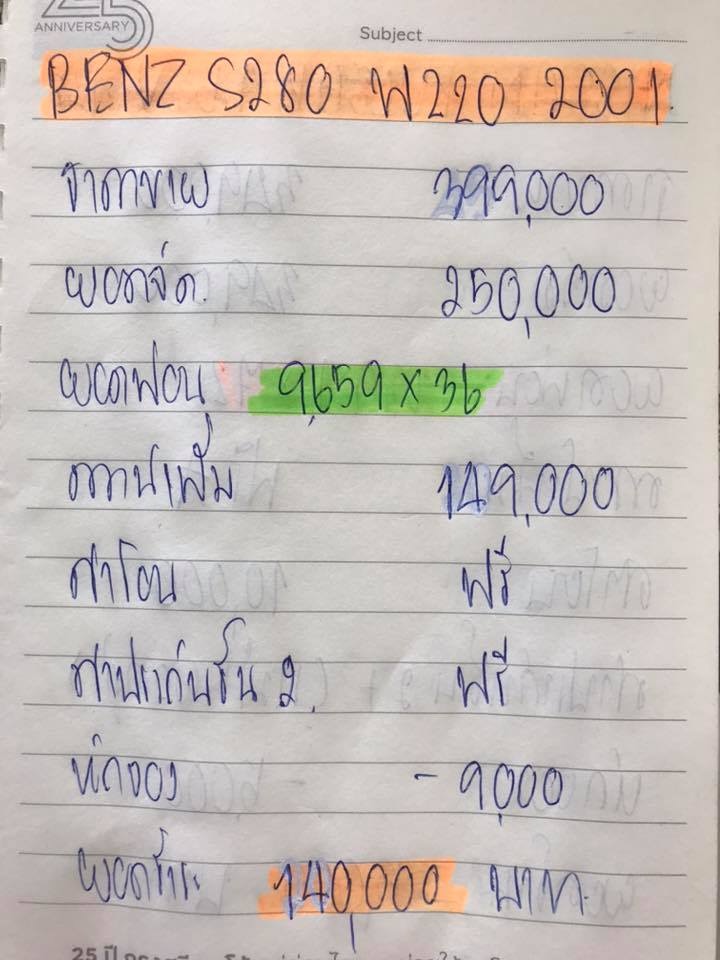 25
ANNIVERSARY
Subject
BENZ S280 W220 2001
ราคาขาย 399,000
ยอดจัด. 250,000
ยอดผ่อน 9,659 x 36
ดาวน์เพิ่ม 149,000
ค่าโอน ฟรี
ค่าประกันชั้น 2. ฟรี
หักจอง - 9,000
ยอดชำระ 140,000 บาท.
25 ปี